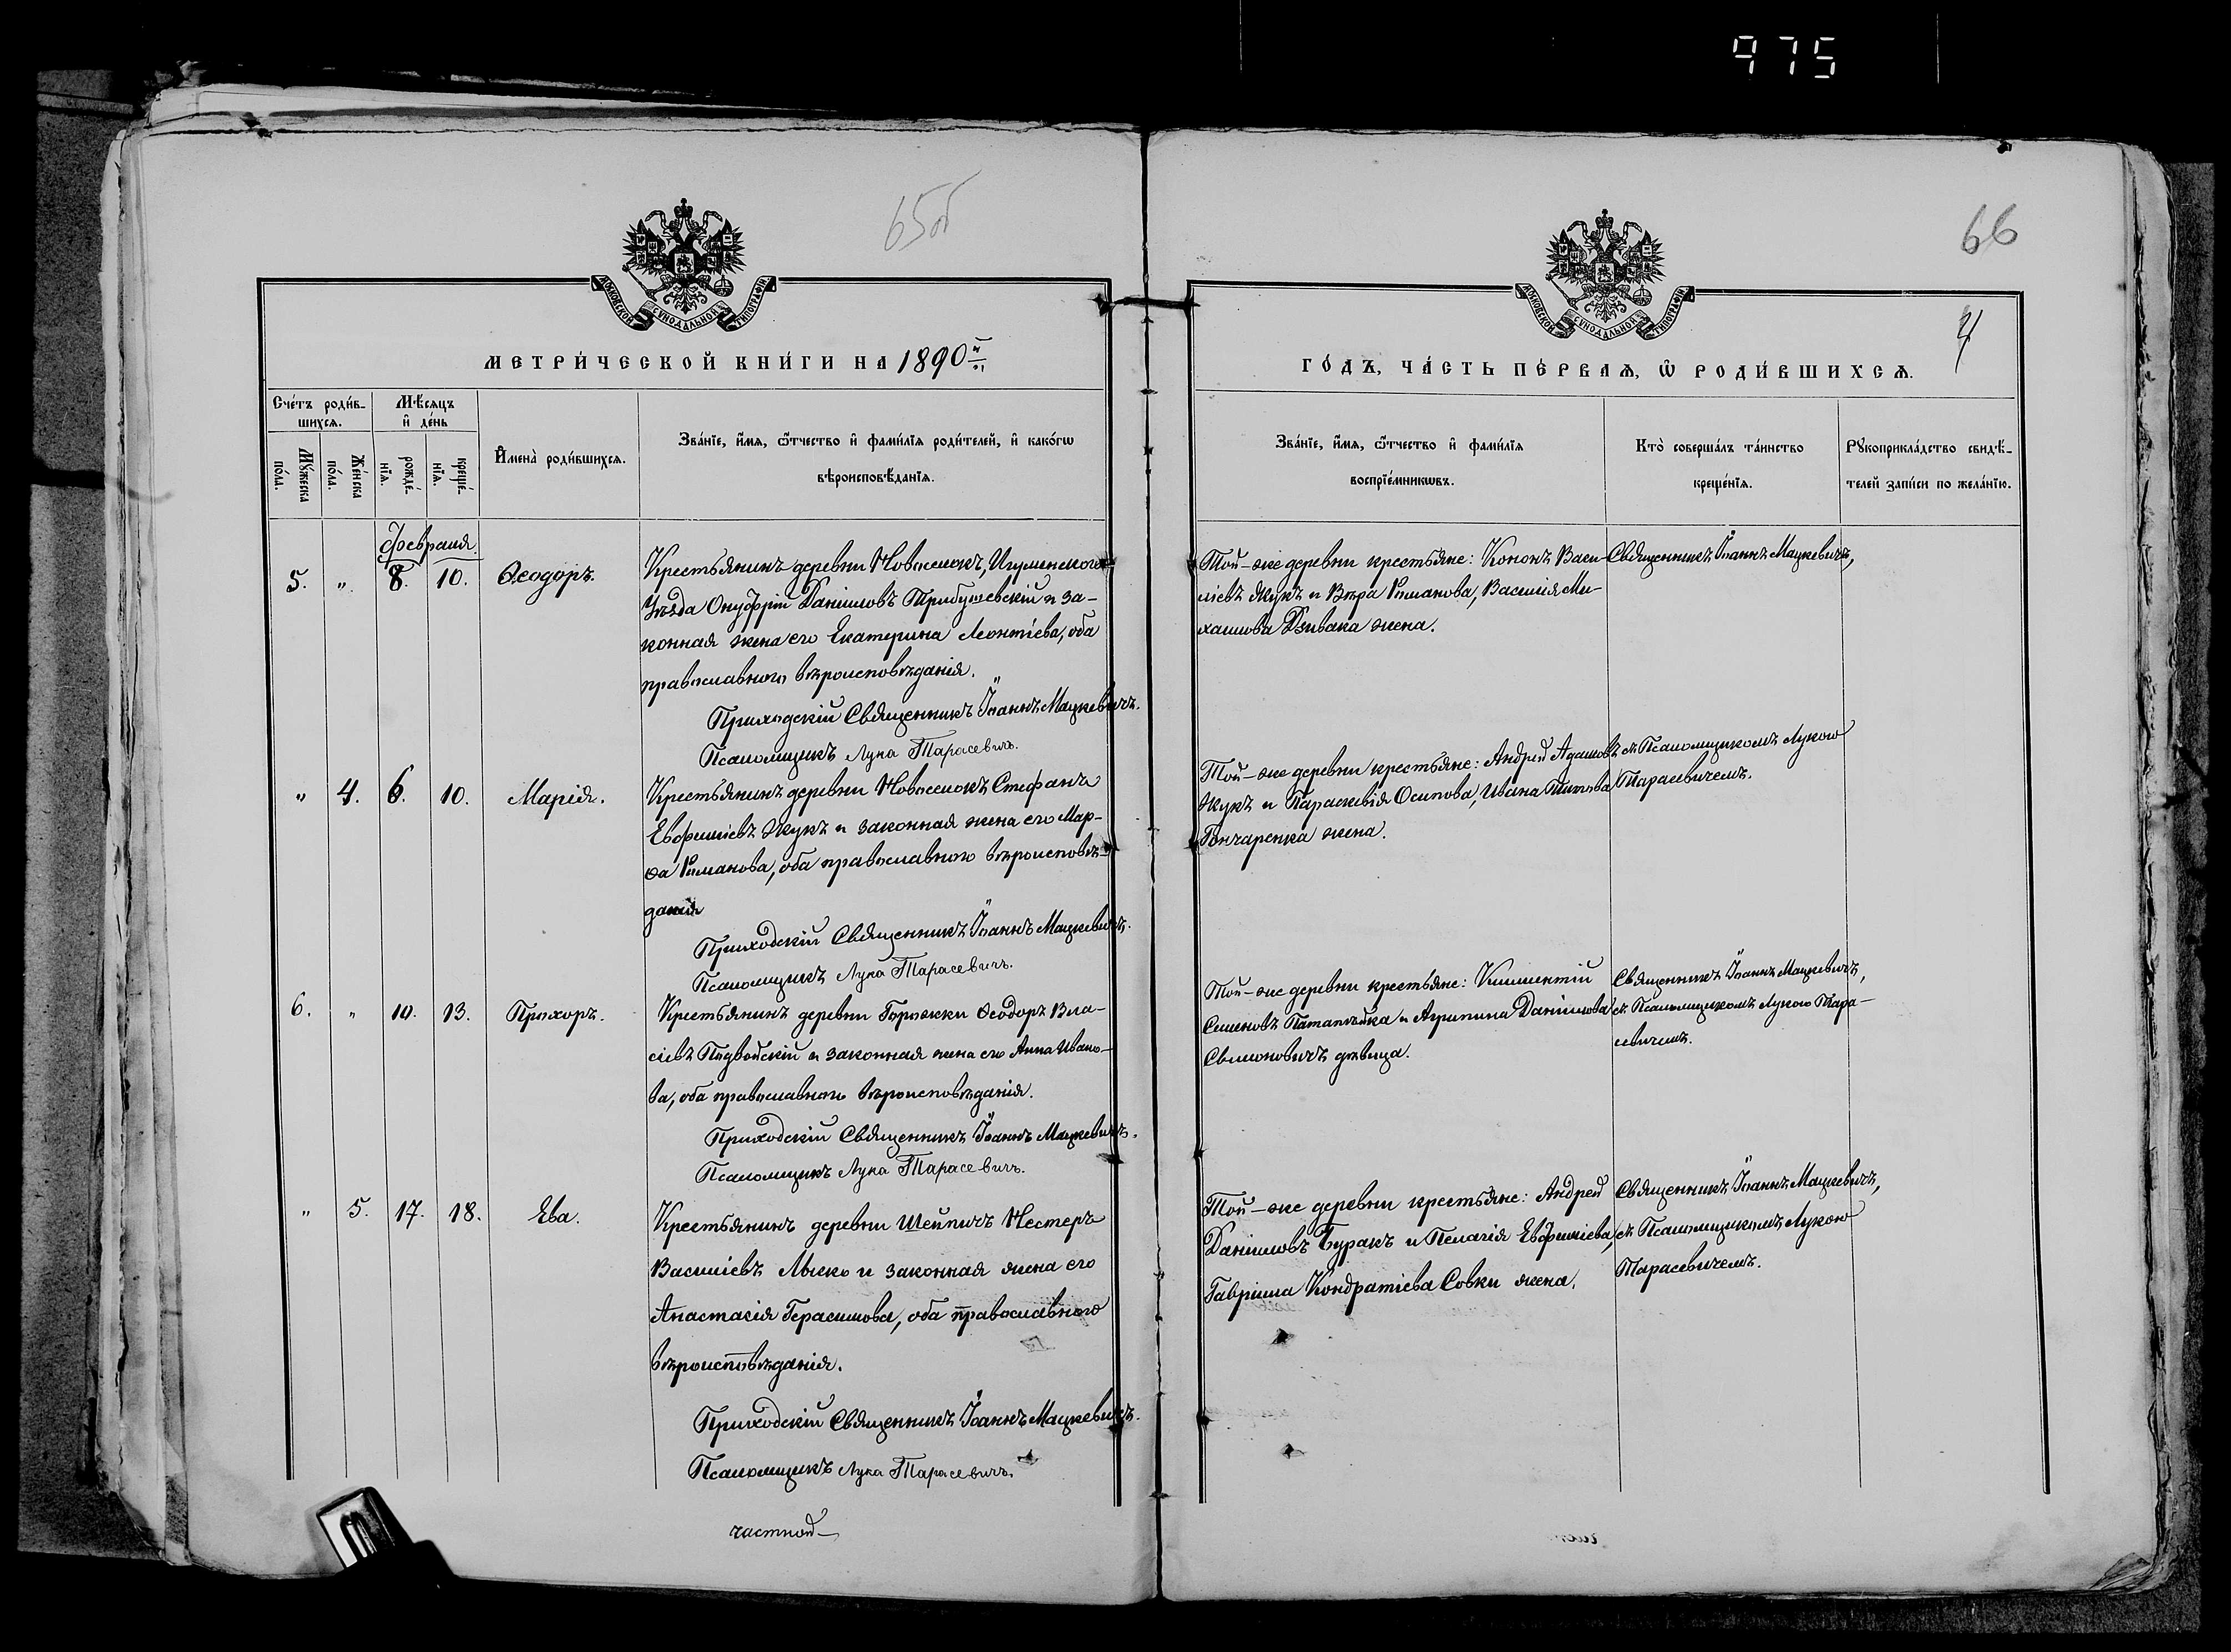 975
65об
66
МОСКОВСКОЙ СѴНОДАЛЬНОЙ ТИПОГРАФІИ
МОСКОВСКОЙ СѴНОДАЛЬНОЙ ТИПОГРАФІИ
4
МЕТРИ́ЧЕСКОЙ КНИ́ГИ НА 1890й
ГО́ДЪ, ЧА́СТЬ ПЕ́РВАѦ, Ѡ҆ РОДИ́ВШИХСѦ.
Сче́тъ роди́в-
шихсѧ.
Мѣ́сѧцъ
и҆ де́нь
Мꙋ́жеска
по́ла.
Же́нска
по́ла.
рожде́-
нїѧ.
креще́-
нїѧ.
И҆мена̀ роди́вшихсѧ.
Зва́нїе, и҆́мѧ, ѻ҆́тчество и҆ фами́лїѧ роди́телей, и҆ како́гѡ
вѣроисповѣ́данїѧ.
Зва́нїе, и҆́мѧ, ѻ҆́тчество и҆ фами́лїѧ
воспрїе́мникѡвъ.
Кто̀ соверша́лъ та́инство
креще́нїѧ.
Рꙋкоприкла́дство свидѣ́-
телей за́писи по жела́нїю.
Февраля.
5. " 8. 10. Ѳеодоръ.
Крестьянинъ деревни Новоселокъ, Игуменскаго
Уѣзда Онуфрій Даніиловъ Трибушевскій и за-
конная жена его Екатерина Леонтіева, оба
православнаго вѣроисповѣданія.
Приходскій Священникъ Іоаннъ Мацкевичъ.
Псаломщикъ Лука Тарасевичъ.
Той-же деревни крестьяне: Кононъ Васи-
ліевъ Жукъ и Вѣра Романова, Василія Ми-
хаилова Дзивака жена.
Священникъ Іоаннъ Мацкевичъ,
" 4. 6. 10. Марія.
Крестьянинъ деревни Новоселокъ Стефанъ
Евфиміевъ Жукъ и законная жена его Мар-
ѳа Романова, оба православнаго вѣроисповѣ-
данія
Приходскій Священникъ Іоаннъ Мацкевичъ.
Псаломщикъ Лука Тарасевичъ.
Той-же деревни крестьяне: Андрей Адамовъ
Жукъ и Параскевія Осипова, Ивана Титова
Гончаренка жена.
съ Псаломщикомъ Лукою
Тарасевичемъ.
6. " 10. 13. Прохоръ.
Крестьянинъ деревни Горожки Ѳеодоръ Вла-
сіевъ Подвойскій и законная жена его Анна Ивано-
ва, оба православнаго вѣроисповѣданія.
Приходскій Священникъ Іоаннъ Мацкевичъ.
Псаломщикъ Лука Тарасевичъ.
Той-же деревни крестьяне: Климентій
Симеоновъ Потапейка и Агрипина Даніилова
Свилоновичъ дѣвица.
Священникъ Іоаннъ Мацкевичъ,
съ Псаломщикомъ Лукою Тара-
севичемъ.
" 5. 17. 18. Ева.
Крестьянинъ деревни Шейпичъ Нестеръ
Василіевъ Лычко и законная жена его
Анастасія Герасимова, оба православнаго
вѣроисповѣданія.
Приходскій Священникъ Іоаннъ Мацкевичъ.
Псаломщикъ Лука Тарасевичъ.
Той-же деревни крестьяне: Андрей
Даніиловъ Буракъ и Пелагія Евфиміева,
Гавріила Кондратіева Совки жена.
Священникъ Іоаннъ Мацкевичъ,
съ Псаломщикомъ Лукою
Тарасевичемъ.